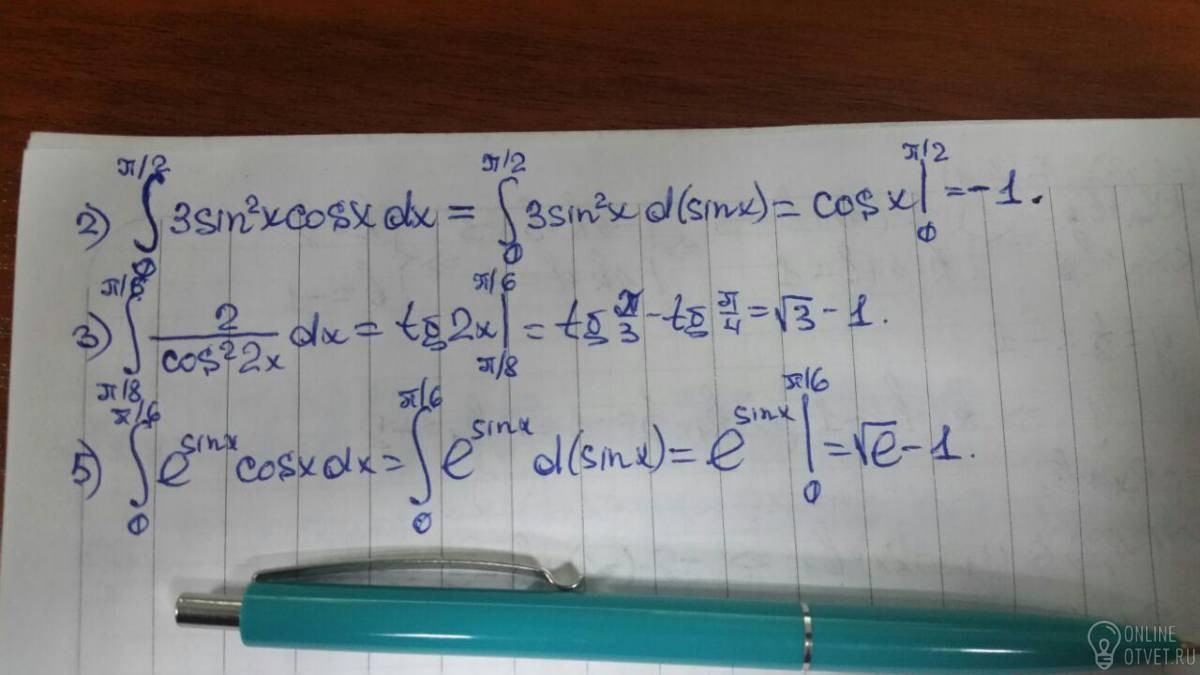 2) ∫₀^{π/2} 3sin²x cosx dx = ∫₀^{π/2} 3sin²x d(sinx) = cosx |₀^{π/2} = -1.
3) ∫_{π/8}^{π/6} 2/(cos²2x) dx = tg2x |_{π/8}^{π/6} = tg π/3 - tg π/4 = √3 - 1.
5) ∫₀^{π/6} e^{sinx} cosx dx = ∫₀^{π/6} e^{sinx} d(sinx) = e^{sinx} |₀^{π/6} = √e - 1.
ONLINE
OTVET.RU